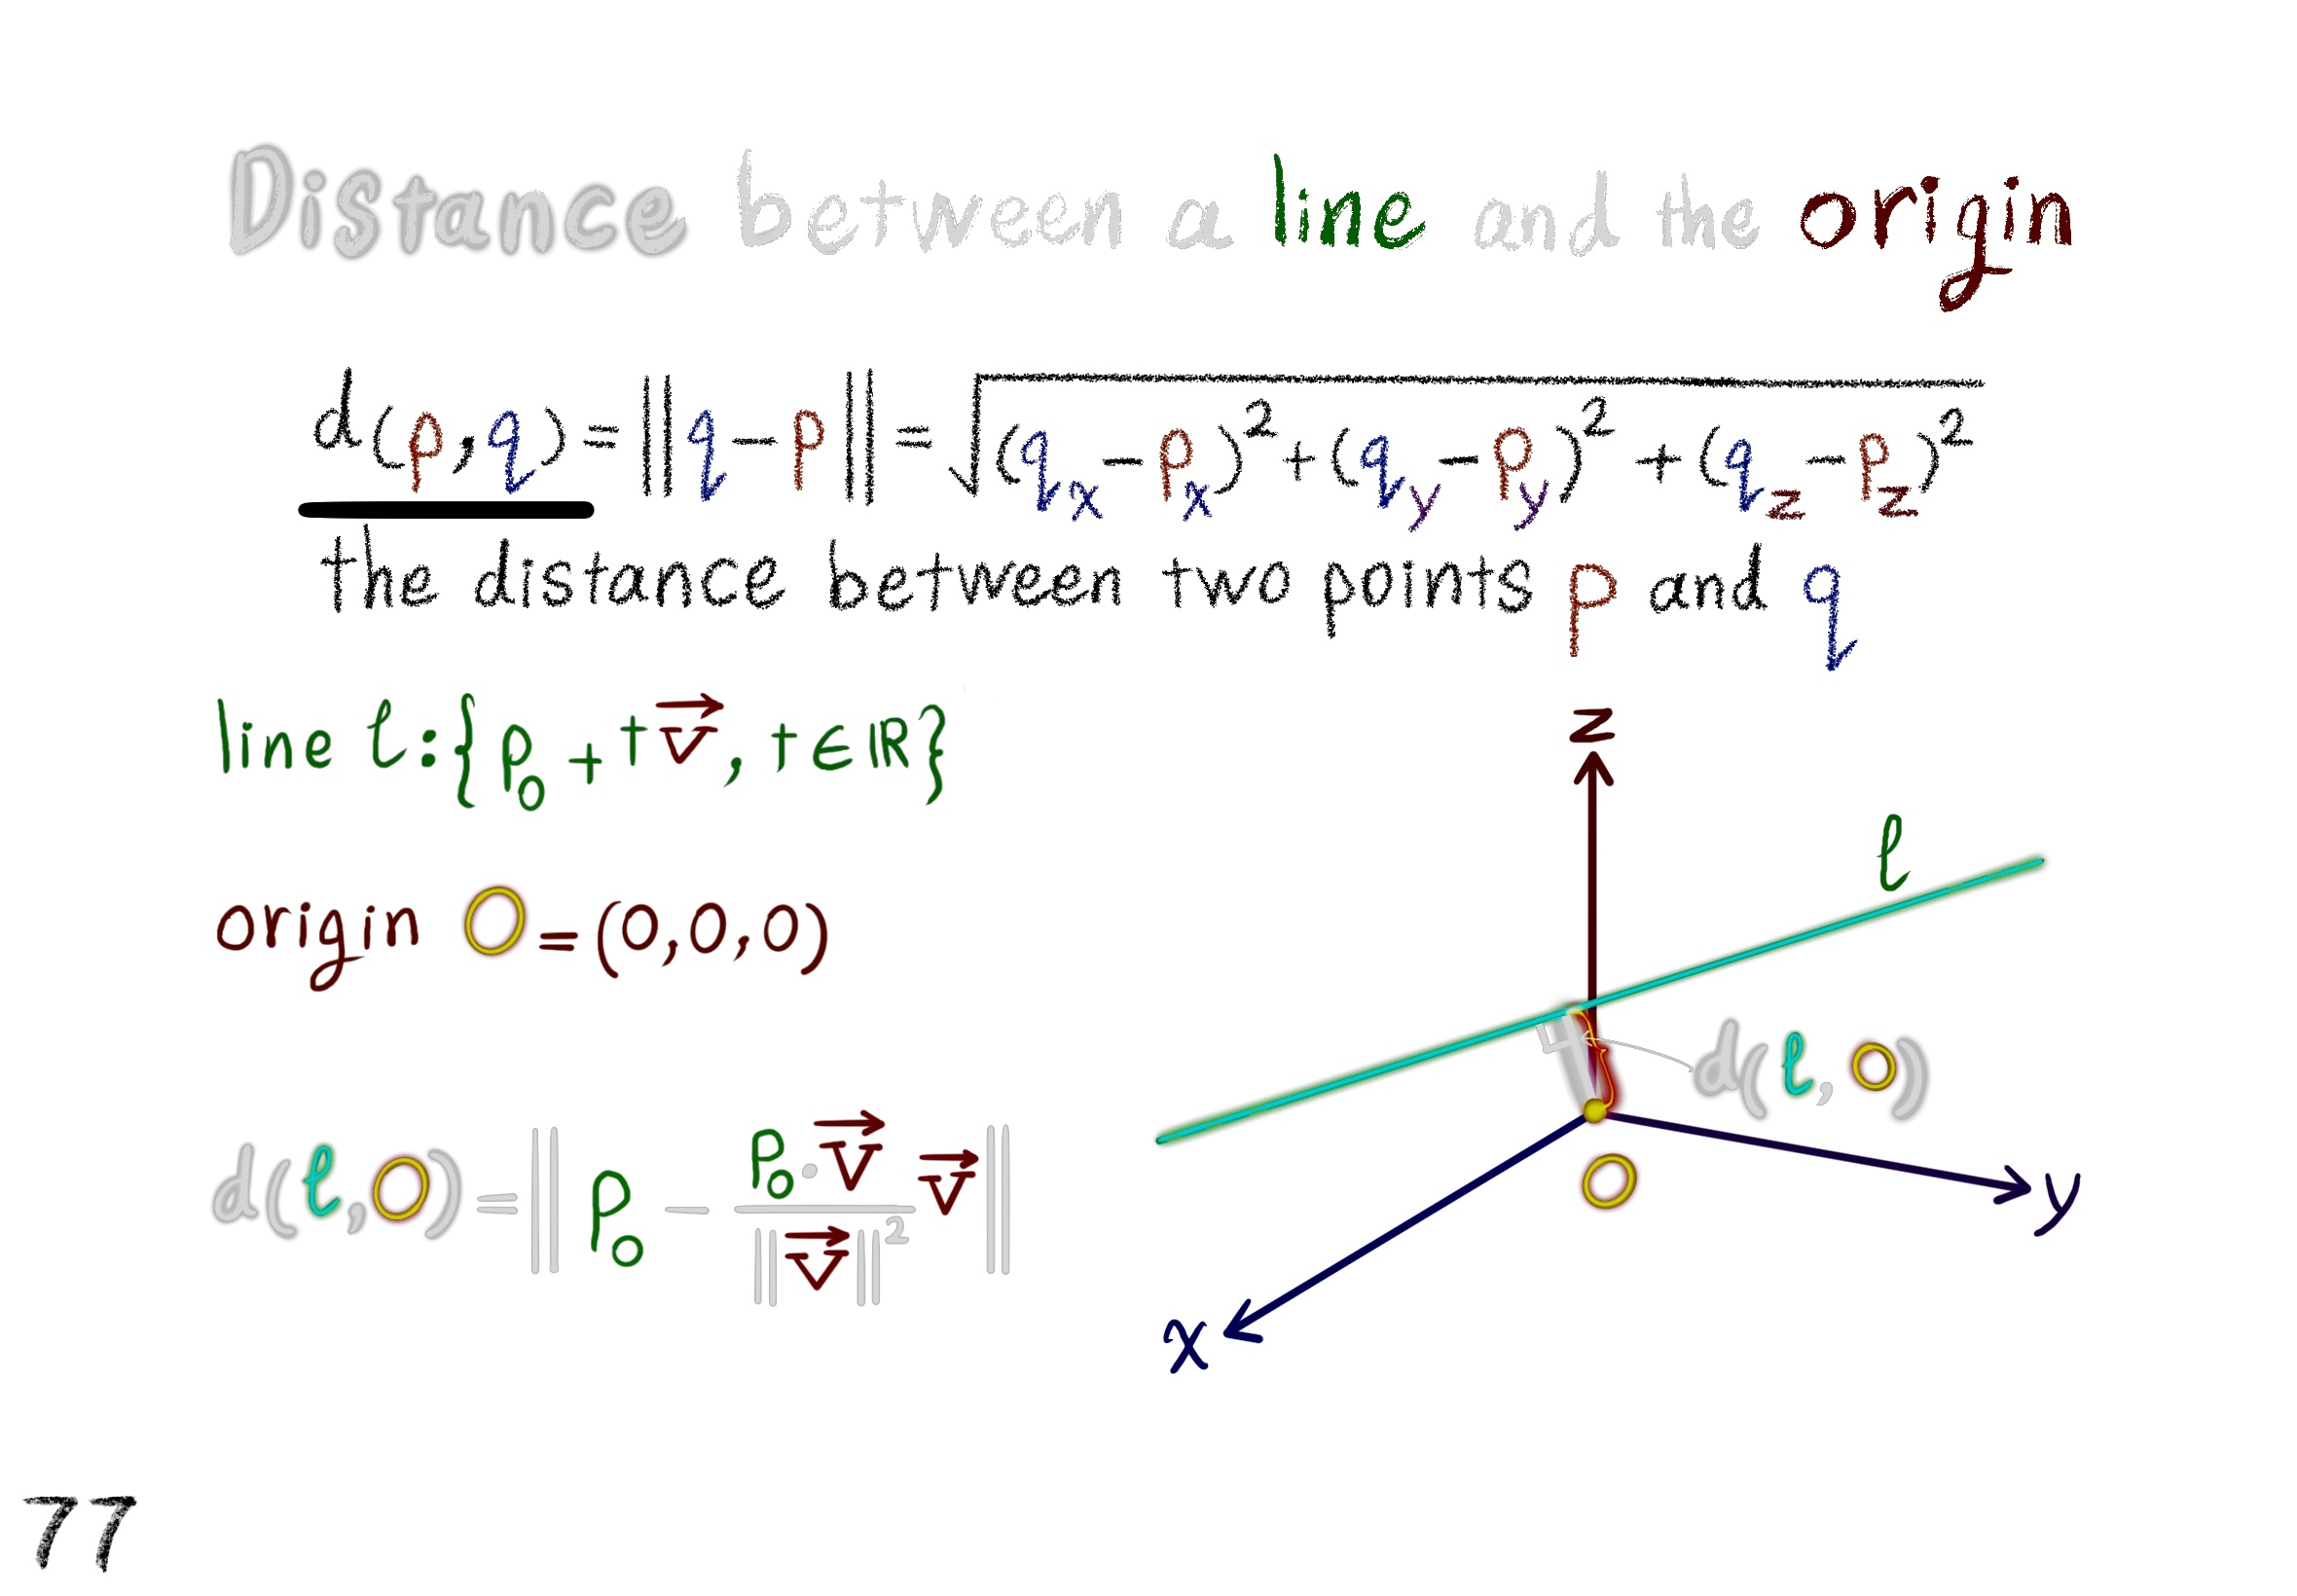 Distance between a line and the origin
d(p,q) = ||q − p|| = √((q_x − p_x)² + (q_y − p_y)² + (q_z − p_z)²)
the distance between two points p and q
line ℓ:{p₀ + t v⃗, t ∈ ℝ}
origin O = (0,0,0)
d(ℓ,O) = || p₀ − (p₀ · v⃗ / ||v⃗||²) v⃗ ||
z
ℓ
d(ℓ, O)
O
y
x
77